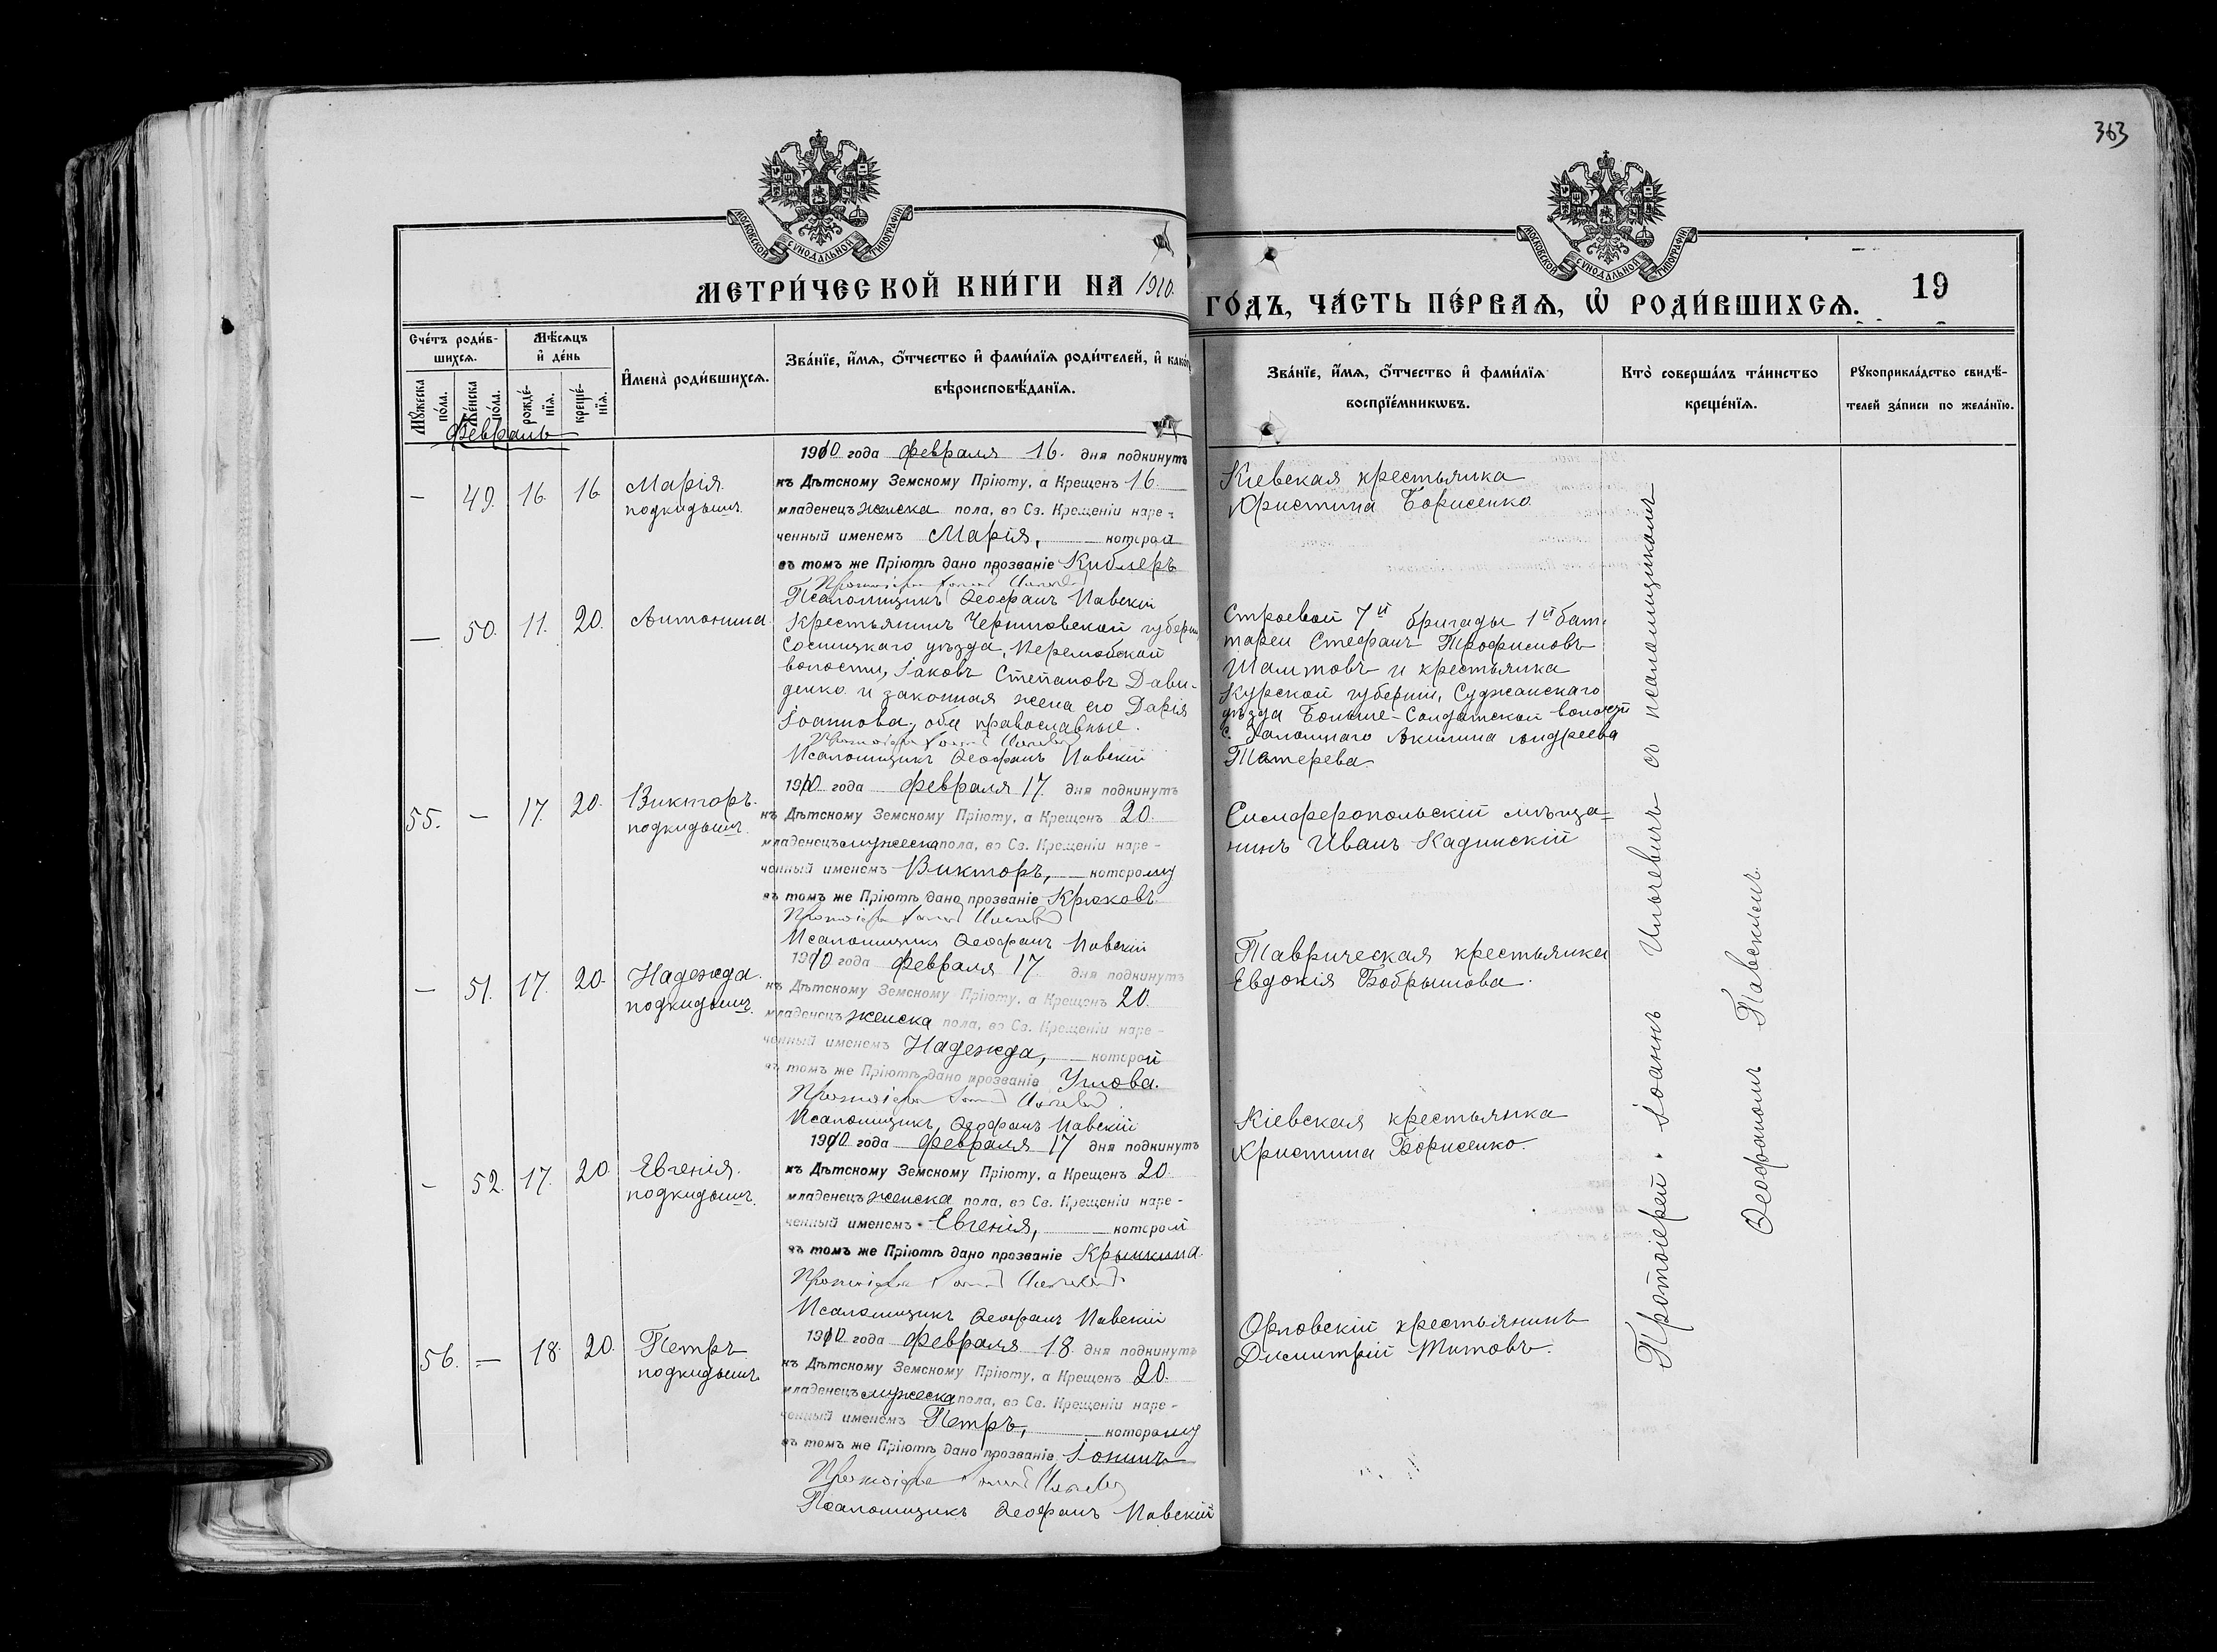 363
МОСКОВСКОЙ СѴНОДАЛЬНОЙ ТИПОГРАФІИ
МОСКОВСКОЙ СѴНОДАЛЬНОЙ ТИПОГРАФІИ
МЕТРИ́ЧЕСКОЙ КНИ́ГИ НА 1910.
ГО́ДЪ, ЧА́СТЬ ПЕ́РВАѦ, Ѽ РОДИ́ВШИХСѦ.
19
Сче́тъ роди́в-
шихсѧ.
Мꙋжеска по́ла.
Же́нска по́ла.
Мѣ́сѧцъ
и҆ де́нь
рожде́-
нїѧ.
креще́-
нїѧ.
И҆мена̀ роди́вшихсѧ.
Зва́нїе, и҆́мѧ, ѻ҆́тчество и҆ фами́лїѧ роди́телей, и҆ како́гѡ
вѣроисповѣ́данїѧ.
Зва́нїе, и҆́мѧ, ѻ҆́тчество и҆ фами́лїѧ
воспрїе́мникѡвъ.
Кто̀ соверша́лъ та́инство
креще́нїѧ.
Рꙋкоприкла́дство свидѣ́-
телей за́писи по жела́нїю.
Февраль
— 49. 16. 16. Марія
подкидышъ.
1910 года февраля 16. дня подкинутъ
къ Дѣтскому Земскому Пріюту, а Крещенъ 16
младенецъ женска пола, во Св. Крещеніи наре-
ченный именемъ Марія, которой
въ томъ же Пріютѣ дано прозваніе Киблеръ
Псаломщикъ Ѳеофанъ Павскій
Кіевская крестьянка
Христина Борисенко.
— 50. 11. 20. Антонина
Крестьянинъ Черниговской губерніи
Сосницкаго уѣзда,
волости, Іаковъ Степановъ Дави-
денко и законная жена его Дарія
Іоаннова, оба православные.
Псаломщикъ Ѳеофанъ Павскій
Строевой 7й бригады 1й бат-
тареи Стефанъ Трофимовъ
Шамтовъ и крестьянка
Курской губерніи, Суджанскаго
уѣзда Больше-Солдатской волости
с. Заломнаго Акилина Андреева
Татерева.
55. — 17. 20. Викторъ.
подкидышъ.
1910 года февраля 17. дня подкинутъ
къ Дѣтскому Земскому Пріюту, а Крещенъ 20.
младенецъ мужеска пола, во Св. Крещеніи наре-
ченный именемъ Викторъ, которому
въ томъ же Пріютѣ дано прозваніе Крюковъ.
Псаломщикъ Ѳеофанъ Павскій
Симферопольскій мѣща=
нинъ Иванъ Кадинскій
— 51. 17. 20. Надежда.
подкидышъ.
1910 года февраля 17 дня подкинутъ
къ Дѣтскому Земскому Пріюту, а Крещенъ 20.
младенецъ женска пола, во Св. Крещеніи наре-
ченный именемъ Надежда, которой
въ томъ же Пріютѣ дано прозваніе Умова.
Псаломщикъ Ѳеофанъ Павскій
Таврическая крестьянка
Евдокія Бобрышова.
- 52. 17. 20 Евгенія.
подкидышъ.
1910 года февраля 17 дня подкинутъ
къ Дѣтскому Земскому Пріюту, а Крещенъ 20
младенецъ женска пола, во Св. Крещеніи наре-
ченный именемъ Евгенія, которой
въ томъ же Пріютѣ дано прозваніе Крымкина.
Псаломщикъ Ѳеофанъ Павскій
Кіевская крестьянка
Христина Борисенко.
56. — 18. 20. Петръ
подкидышъ
1910 года февраля 18. дня подкинутъ
къ Дѣтскому Земскому Пріюту, а Крещенъ 20.
младенецъ мужеска пола, во Св. Крещеніи наре-
ченный именемъ Петръ, которому
въ томъ же Пріютѣ дано прозваніе Іонинъ
Псаломщикъ Ѳеофанъ Павскій
Орловскій крестьянинъ
Димитрій Титовъ.
Протоіерей Іоаннъ Ильчевичъ съ псаломщикомъ
Ѳеофаномъ Павскимъ.